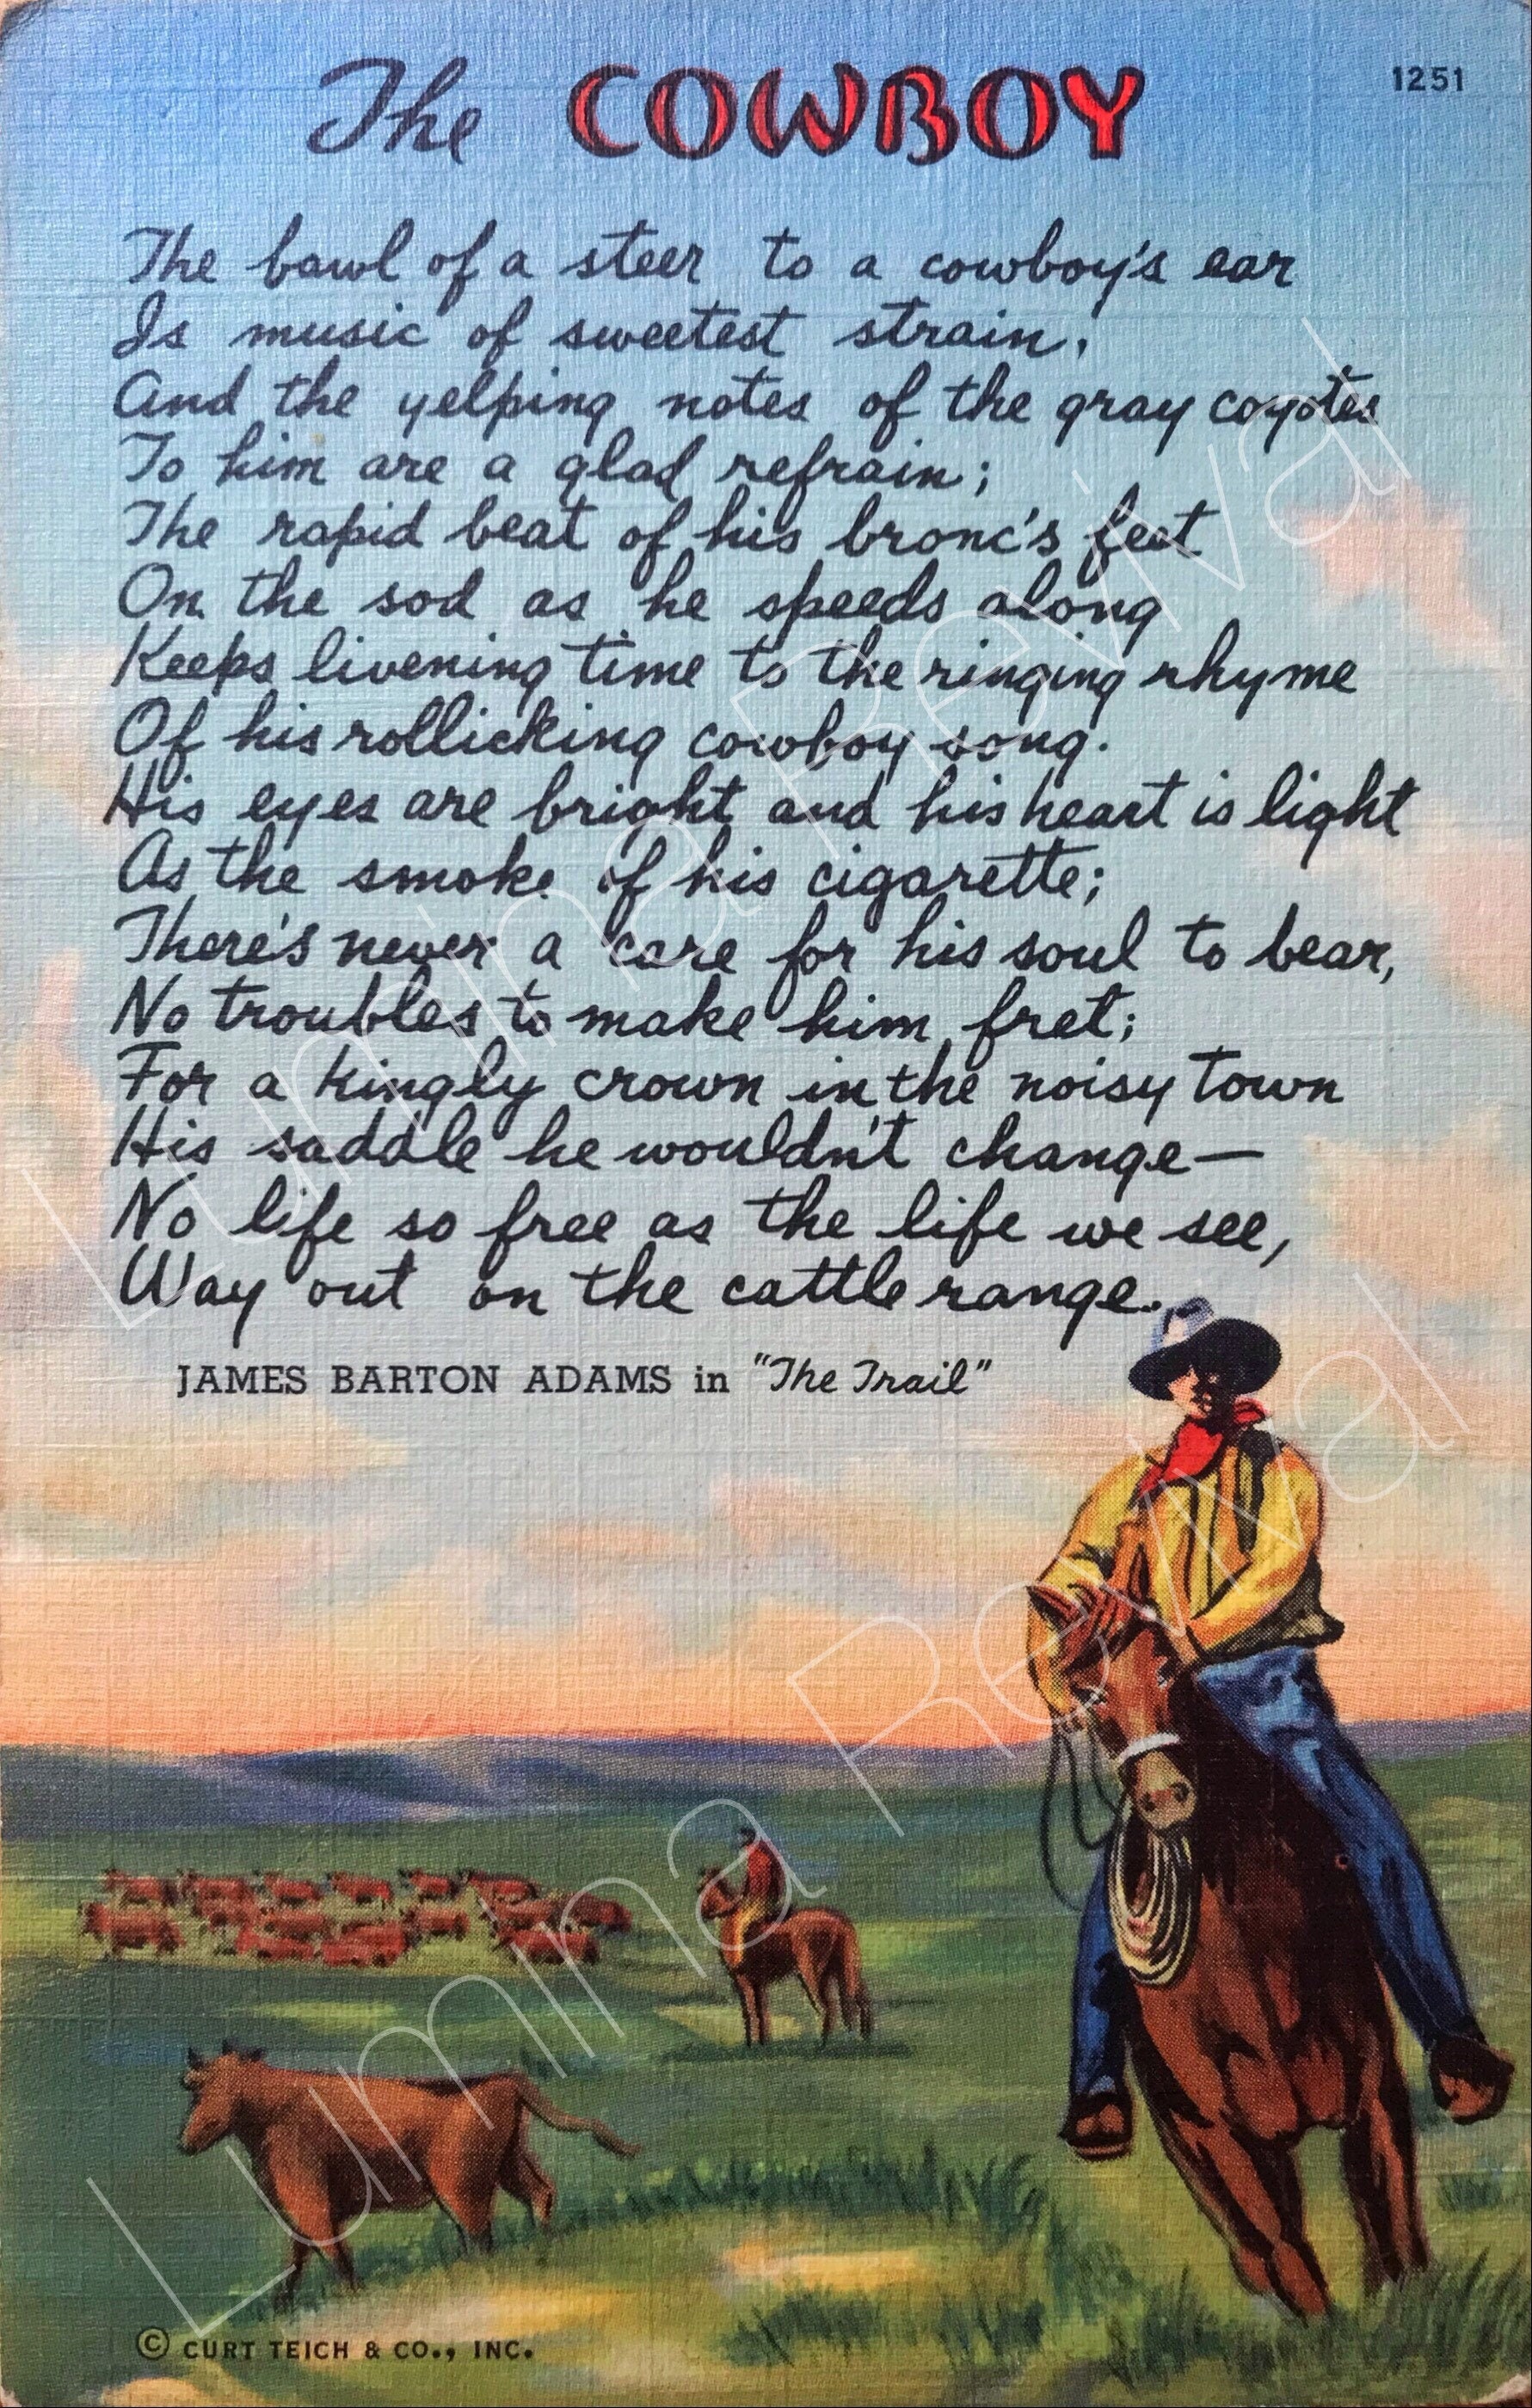 The COWBOY
1251
The bawl of a steer to a cowboy's ear
Is music of sweetest strain,
And the yelping notes of the gray coyotes
To him are a glad refrain;
The rapid beat of his bronc's feet
On the sod as he speeds along
Keeps livening time to the ringing rhyme
Of his rollicking cowboy song.
His eyes are bright and his heart is light
As the smoke of his cigarette;
There's never a care for his soul to bear,
No troubles to make him fret;
For a kingly crown in the noisy town
His saddle he wouldn't change—
No life so free as the life we see,
Way out on the cattle range.
JAMES BARTON ADAMS in "The Trail"
© CURT TEICH & CO., INC.
Lumina Revival
Lumina Revival